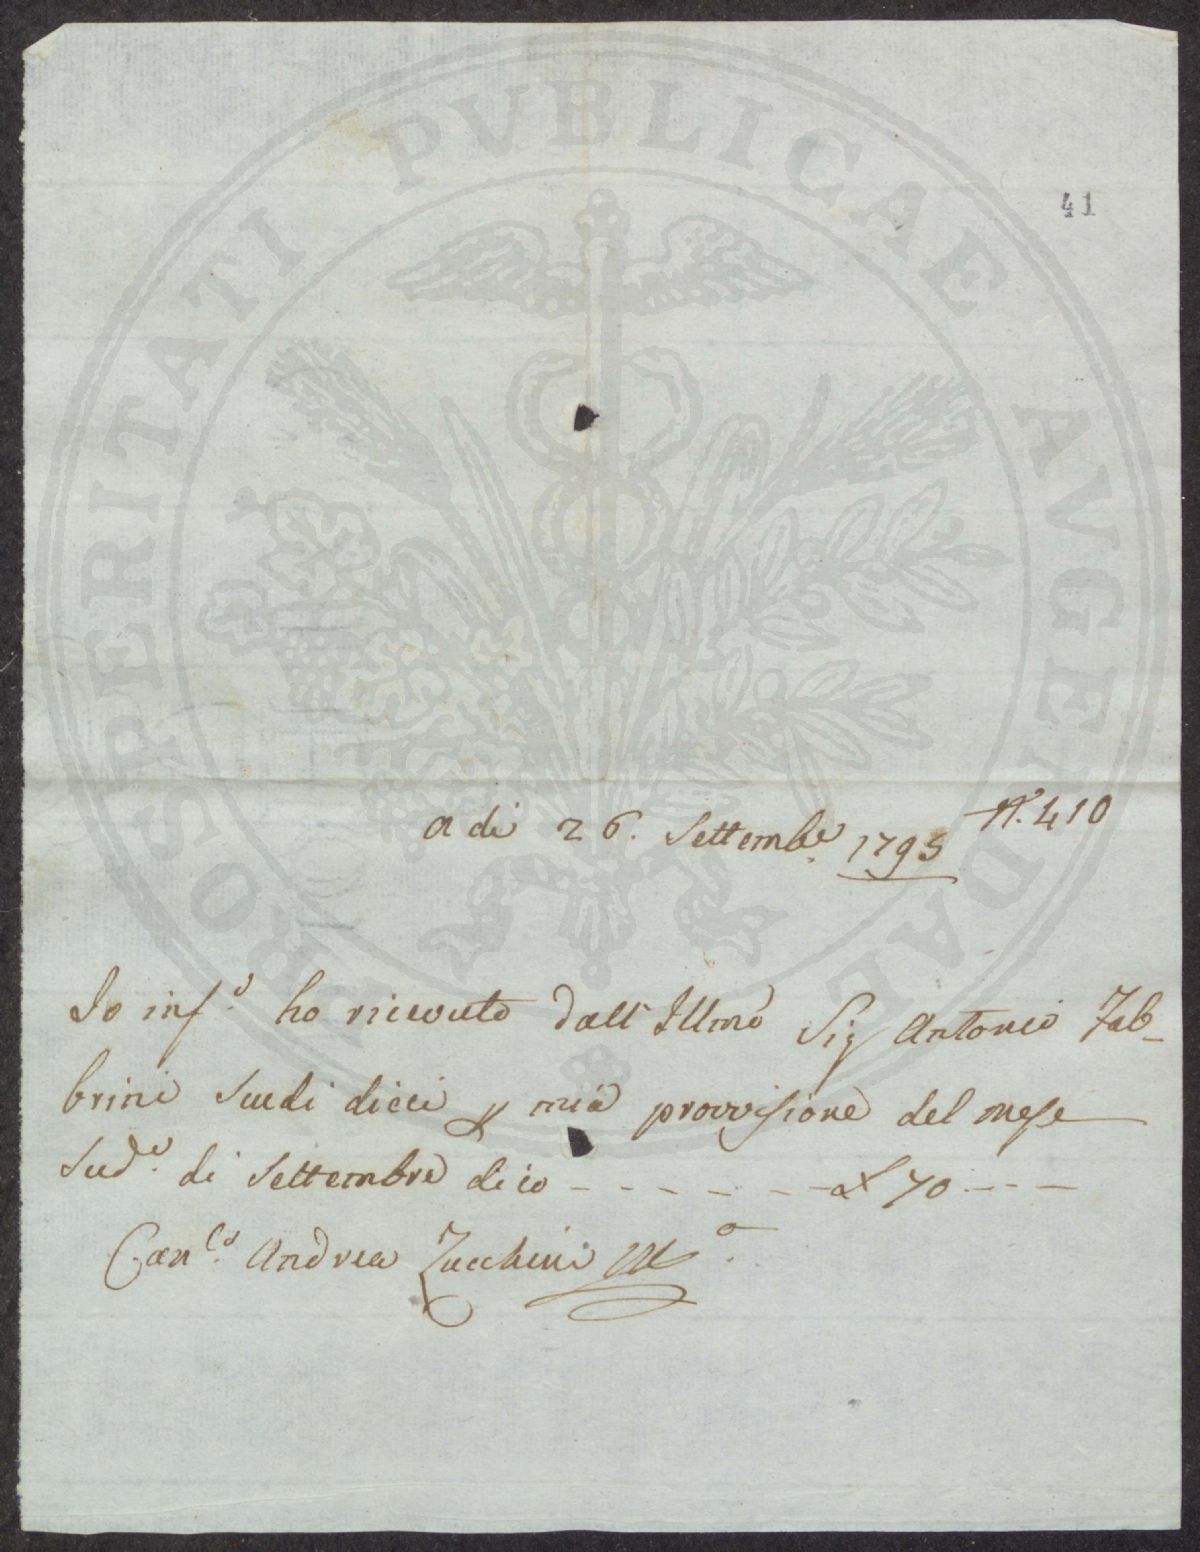 PROSPERITATI PVBLICAE AVGENDAE
41
N.º 410
A di 26. Settembe. 1795
Io inf.o ho ricevuto dall' Illmo Sig Antonio Fab-
brini Scudi dieci p mia provvisione del mese
Sud.o di Settembre dico - - - - - - - £ 70 - - -
Can.co Andrea Zucchini